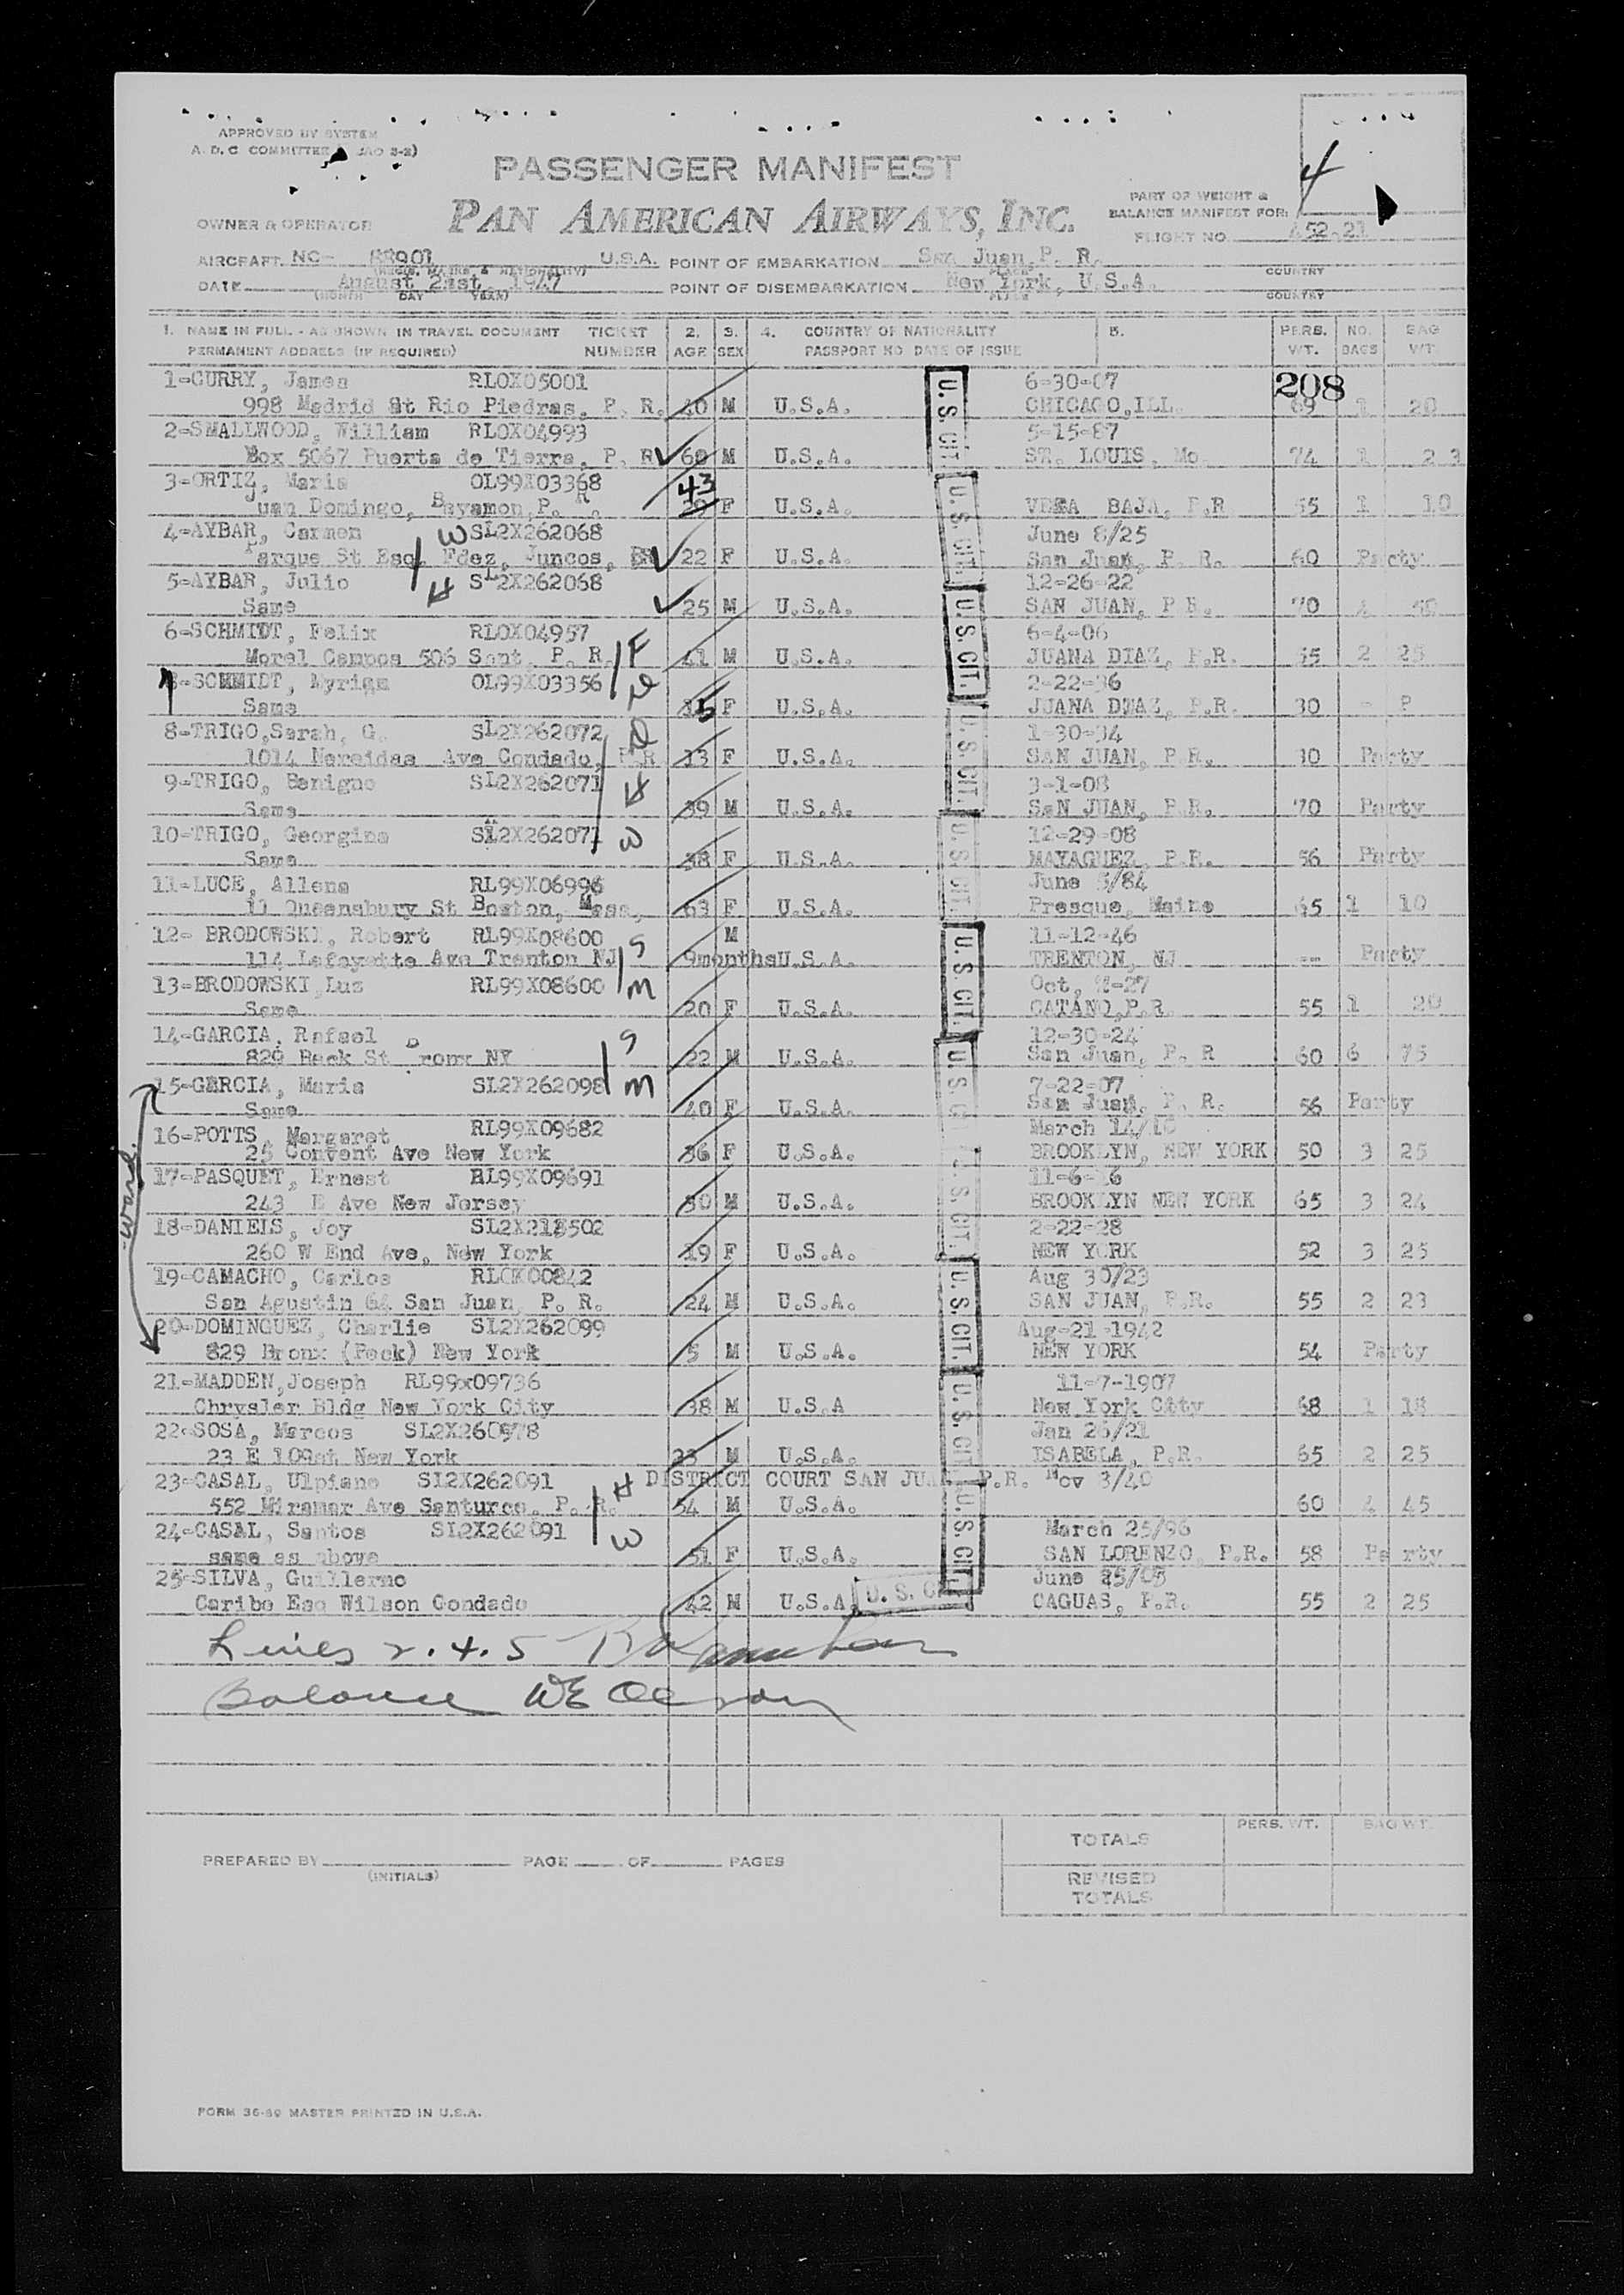 APPROVED BY SYSTEM
A. D. C COMMITTEE
4
PASSENGER MANIFEST
PART OF WEIGHT &
BALANCE MANIFEST FOR:
OWNER & OPERATOR PAN AMERICAN AIRWAYS, INC.
FLIGHT NO. 452-21
AIRCRAFT NC- 88901 U.S.A. POINT OF EMBARKATION San Juan, P. R.
(REGIS. MARKS & NATIONALITY) PLACE COUNTRY
DATE August 21st, 1947 POINT OF DISEMBARKATION New York, U.S.A.
(MONTH DAY YEAR) PLACE COUNTRY
1. NAME IN FULL - AS SHOWN IN TRAVEL DOCUMENT TICKET 2. 3. 4. COUNTRY OF NATIONALITY 5. PERS. NO. BAG
PERMANENT ADDRESS (IF REQUIRED) NUMBER AGE SEX PASSPORT NO DATE OF ISSUE WT. BAGS WT
1-CURRY, James RLOX05001 6-30-07 208
998 Madrid St Rio Piedras, P. R. 40 M U.S.A. U.S. CIT. CHICAGO, ILL. 69 1 20
2-SMALLWOOD, William RLOX04993 5-15-87
Box 5067 Puerta de Tierra, P. R 60 M U.S.A. ST. LOUIS, Mo. 74 1 23
3-ORTIZ, Maria OL99X03368 43
Juan Domingo, Bayamon, P. R. 39 F U.S.A. U.S. CIT. VEGA BAJA, P.R 55 1 10
4-AYBAR, Carmen W SL2X262068 June 8/25
Parque St Esq. Fdez, Juncos, 22 F U.S.A. San Juan, P. R. 60 Party
5-AYBAR, Julio H SL2X262068 12-26-22
Same 25 M U.S.A. U.S. CIT. SAN JUAN, P R. 70 4
6-SCHMIDT, Felix RLOX04957 F 6-4-06
Morel Campos 506 Sant, P. R. 41 M U.S.A. JUANA DIAZ, P.R. 55 2 25
7-SCHMIDT, Myriam OL99X03356 D 2-22-36
Same 15 F U.S.A. JUANA DIAZ, P.R. 30 - P
8-TRIGO, Sarah, G. SL2X262072 D 1-30-34
1014 Nereidas Ave Condado, P R 13 F U.S.A. U.S. CIT. SAN JUAN, P.R. 30 Party
9-TRIGO, Benigno SL2X262071 H 3-1-08
Same 39 M U.S.A. SaN JUAN, P.R. 70 Party
10-TRIGO, Georgina SL2X262071 W 12-29-08
Same 38 F U.S.A. U.S. CIT. MAYAGUEZ, P.R. 56 Party
11-LUCE, Allena RL99X06996 June 5/84
11 Queensbury St Boston, Mass, 63 F U.S.A. Presque, Maine 65 1 10
12- BRODOWSKI, Robert RL99X08600 S M 11-12-46
114 Lafayette Ave Trenton NJ 9months U.S.A. U.S CIT. TRENTON, NJ -- Party
13-BRODOWSKI, Luz RL99X08600 M Oct, 2-27
Same 20 F U.S.A. CATANO, P.R. 55 1 20
14-GARCIA, Rafael S 12-30-24
829 Beck St Bronx NY 22 M U.S.A. U.S. CIT San Juan, P. R 60 6 75
15-GARCIA, Maria SL2X262098 M 7-22-07
Same 40 F U.S.A. San Juan, P. R. 56 Party
16-POTTS, Margaret RL99X09682 March 14/
25 Convent Ave New York 36 F U.S.A. BROOKLYN, NEW YORK 50 3 25
17-PASQUET, Ernest RL99X09691 11-6-16
243 E Ave New Jersey 30 M U.S.A. U.S. CIT. BROOKLYN NEW YORK 65 3 24
18-DANIELS, Joy SL2X213502 2-22-28
260 W End Ave, New York 19 F U.S.A. NEW YORK 52 3 25
19-CAMACHO, Carlos RLOX00842 Aug 30/23
San Agustin 64 San Juan, P. R. 24 M U.S.A. U.S. CIT. SAN JUAN, P.R. 55 2 23
20-DOMINGUEZ, Charlie SL2X262099 Aug-21-1942
829 Bronx (Beck) New York 5 M U.S.A. NEW YORK 54 Party
21-MADDEN, Joseph RL99x09736 11-7-1907
Chrysler Bldg New York City 38 M U.S.A U.S. CIT. New York City 68 1 18
22-SOSA, Marcos SL2X260978 Jan 26/21
23 E 109st New York 23 M U.S.A. ISABELA, P.R. 65 2 25
23-CASAL, Ulpiano SL2X262091 H DISTRICT COURT SAN JUAN P.R. Nov 3/40
552 Miramar Ave Santurce, P. R. 54 M U.S.A. U.S. CIT. 60 4 45
24-CASAL, Santos SL2X262091 W March 25/96
same as above 51 F U.S.A. SAN LORENZO, P.R. 58 Party
25-SILVA, Guillermo June 25/05
Caribe Esq Wilson Condado 42 M U.S.A. U. S. CIT CAGUAS, P.R. 55 2 25
Lines 2.4.5
Balance WE Olerson
TOTALS PERS. WT. BAG WT.
PREPARED BY PAGE OF PAGES
(INITIALS)
REVISED
TOTALS
FORM 36-50 MASTER PRINTED IN U.S.A.